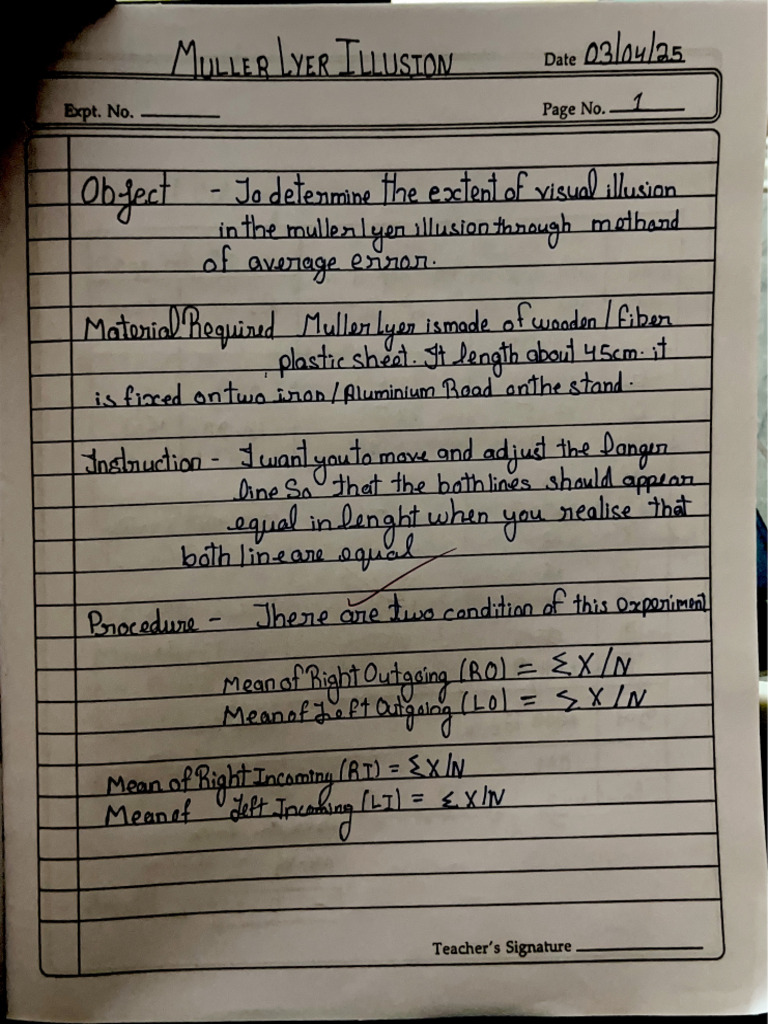 MULLER LYER ILLUSION Date 03/04/25
Expt. No. Page No. 1
Object - To determine the extent of visual illusion
in the muller lyer illusion through methord
of average error.
Material Required Muller lyer is made of wooden / fiber
plastic sheet. It length about 45cm. it
is fixed on two iron / Aluminium Road on the stand.
Instruction - I want you to move and adjust the longer
line So that the both lines should appear
equal in lenght when you realise that
both line are equal
Procedure - There are two condition of this experiment
Mean of Right Outgoing (RO) = ΣX/N
Mean of Left Outgoing (LO) = ΣX/N
Mean of Right Incoming (RI) = ΣX/N
Mean of Left Incoming (LI) = ΣX/N
Teacher's Signature